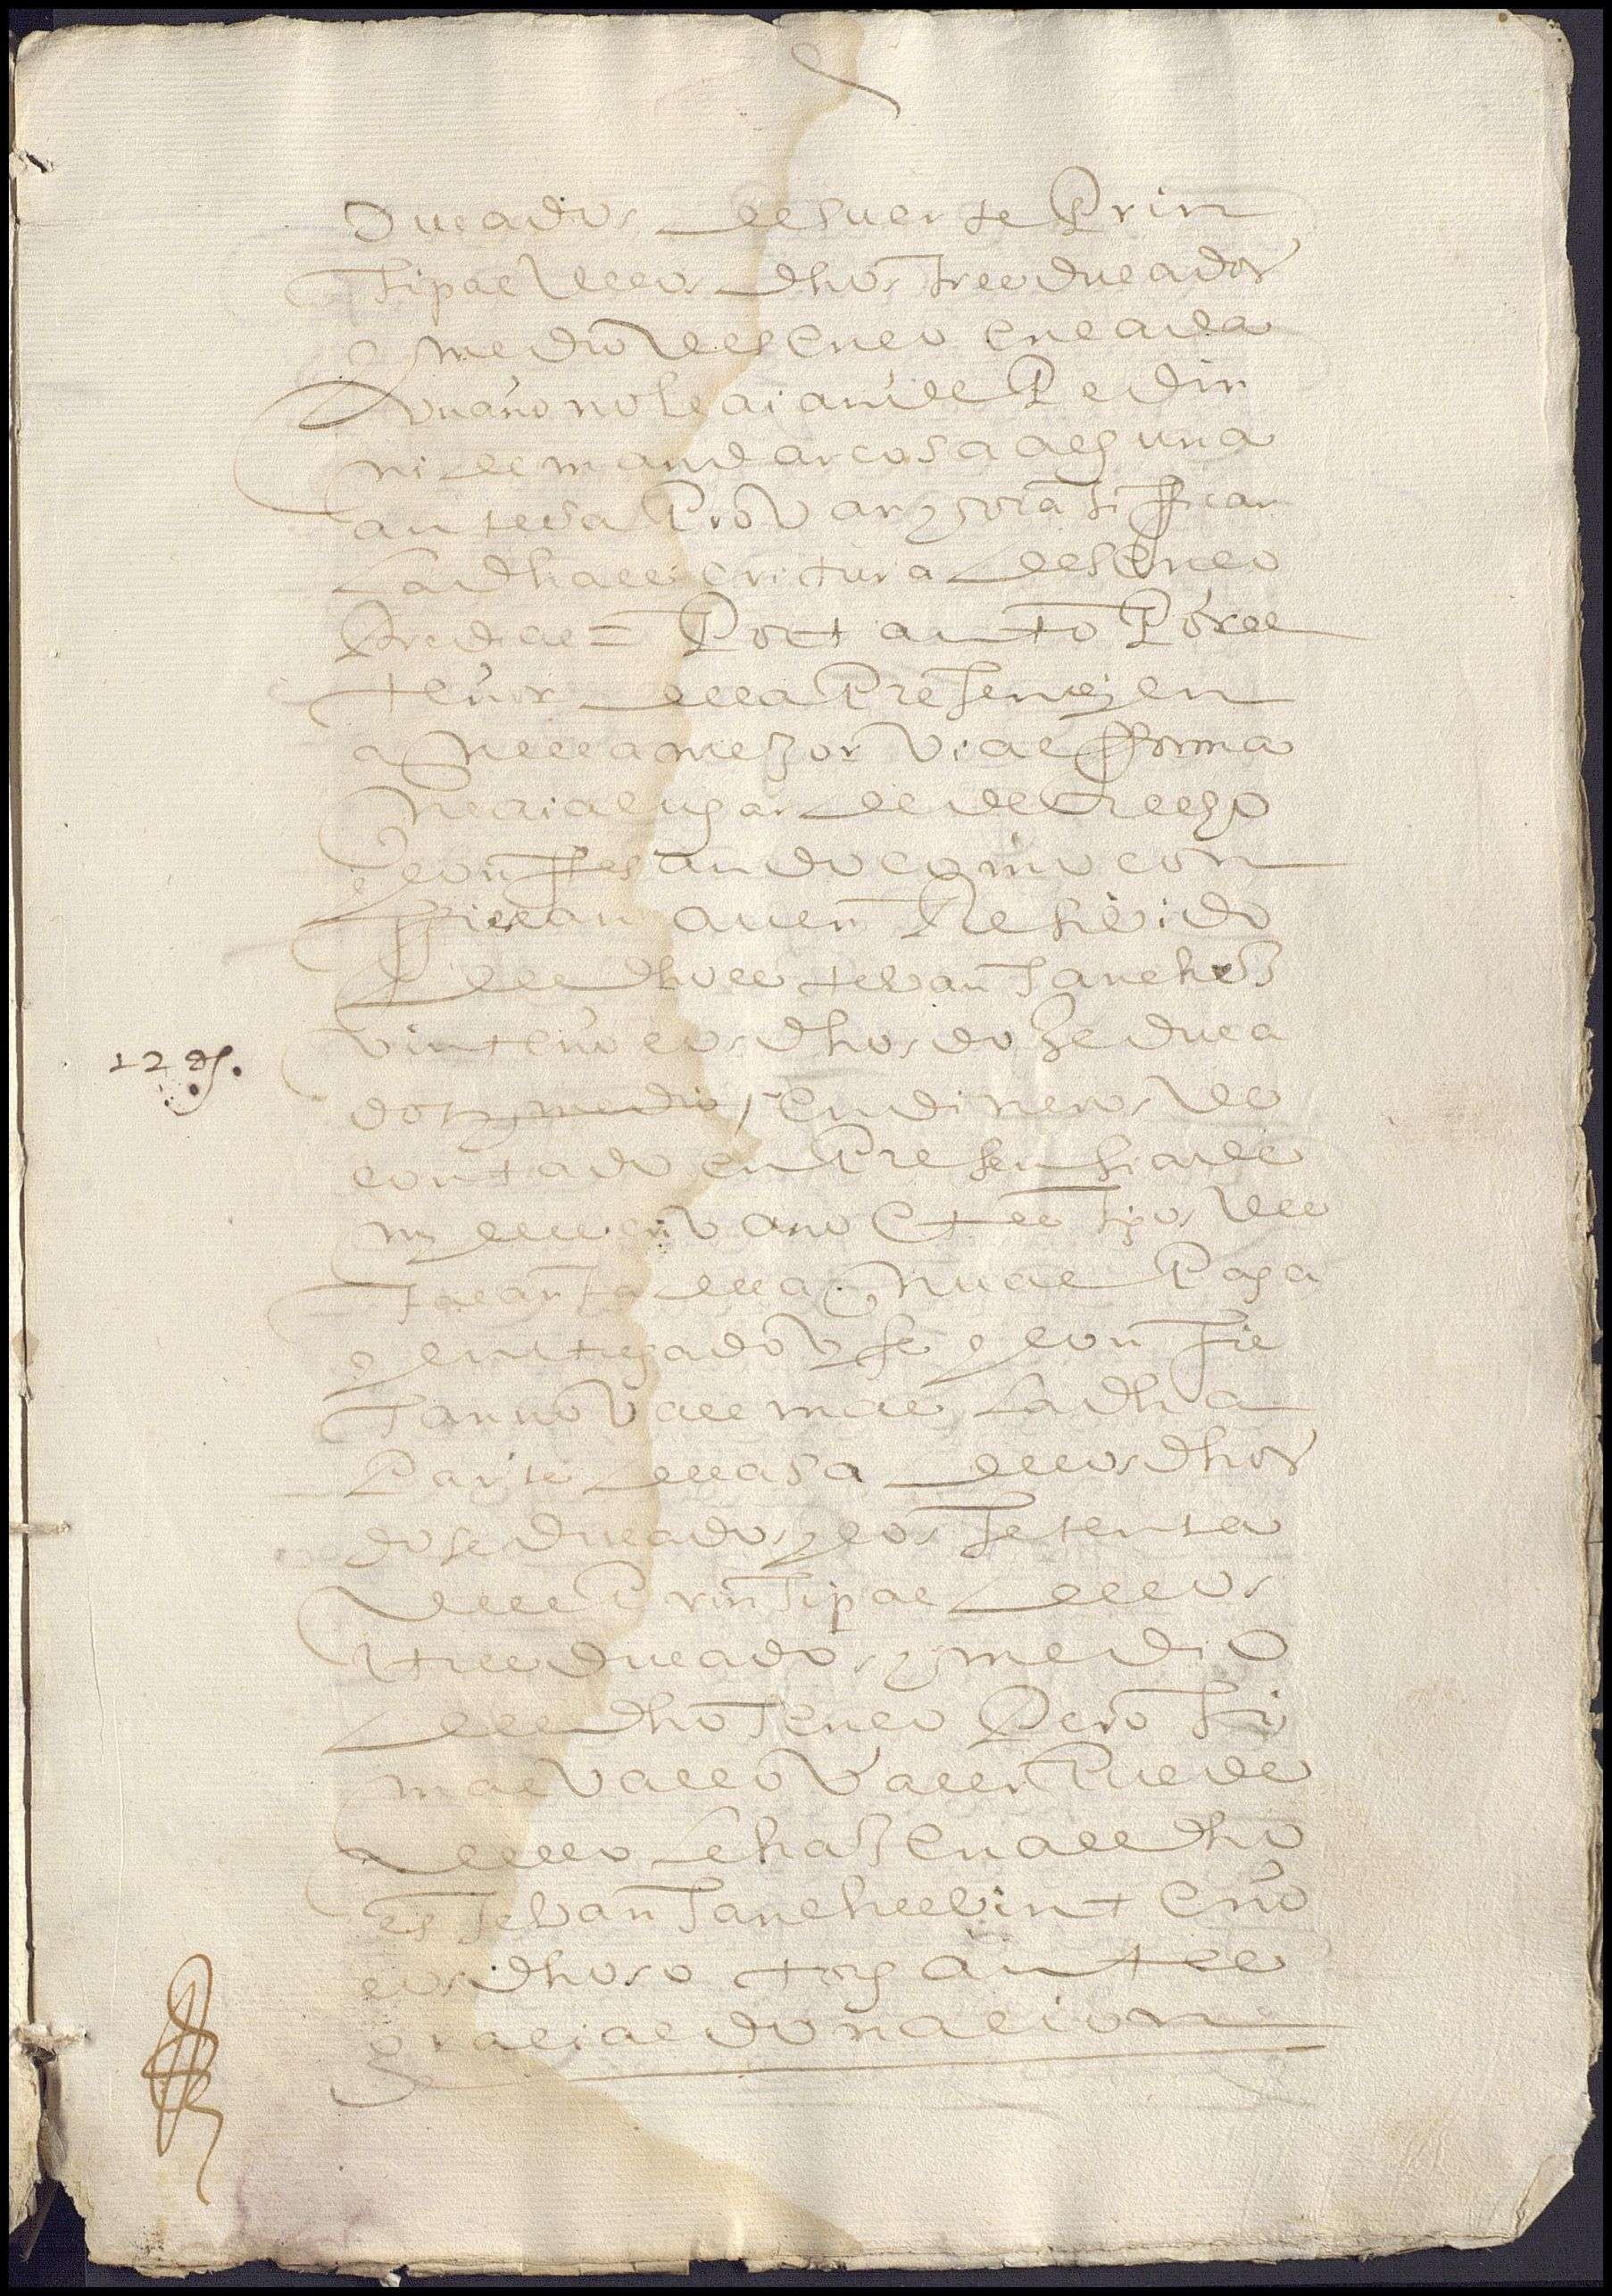 Ducados de suerte Prin
sipal de los dhos tres ducados
y medio de senso en cada
vn año no le ajan de Pedir
ni demandar cosa alguna
antes aProvar y ratifficar
la dha escritura de senso
Redital = Por tanto Por el
tenor de la Presente y en
a quella mejor via e fforma
que aia lugar de derecho
y conffesando como con
ffiesan aver Resivido
del dho estevan sanches
vinteño los dhos dose duca
12 ds.
dos y medio / en dineros de
contado en Presensia de
my el escrivano e testigos de
la qual Paga
y entrego doy fe y confie
san no vale mas la dha
Parte de casa de los dhos
dose ducados y los setenta
del Prinsipal de los
tres ducados y medio
del dho senso Pero si
mas vale o valer Puede
de ello le hasen al dho
estevan sanches vinteño
los dhos otorgantes
gracia e donacion